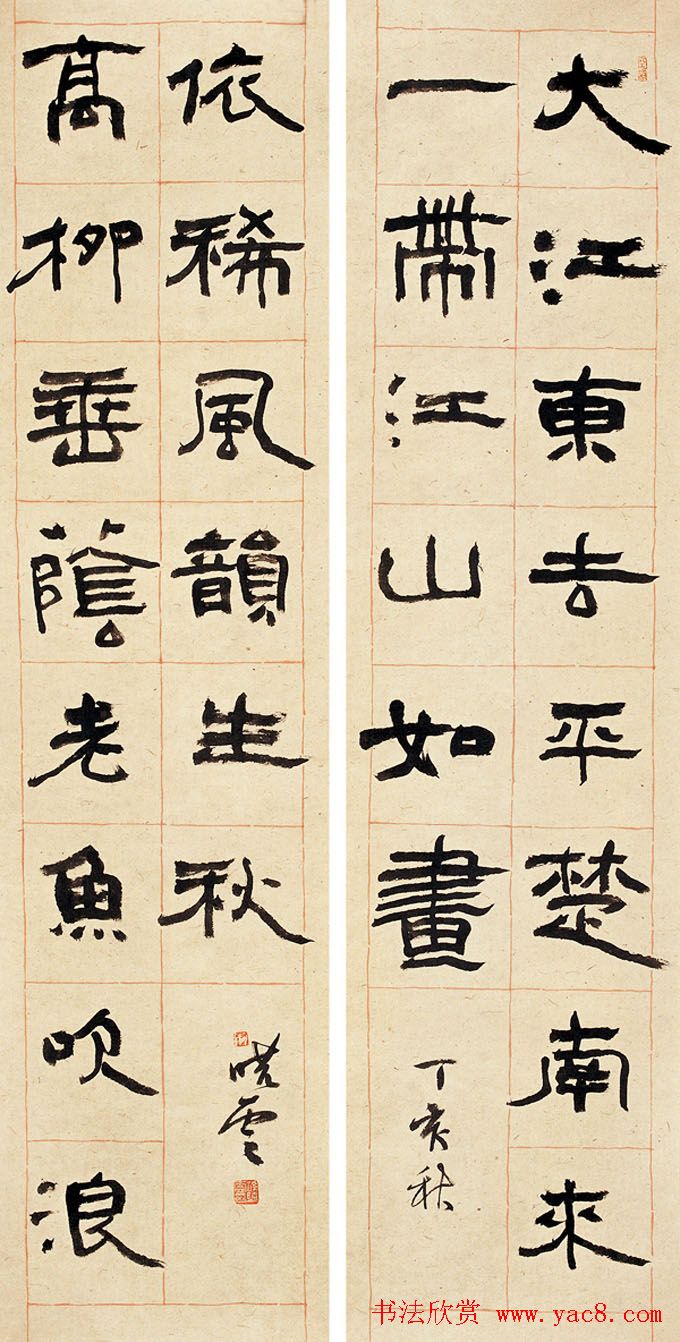 大江東去平楚南來
一帶江山如畫
丁亥秋
高柳垂蔭老魚吹浪
依稀風韻生秋
曉雲
书法欣赏 www.yac8.com